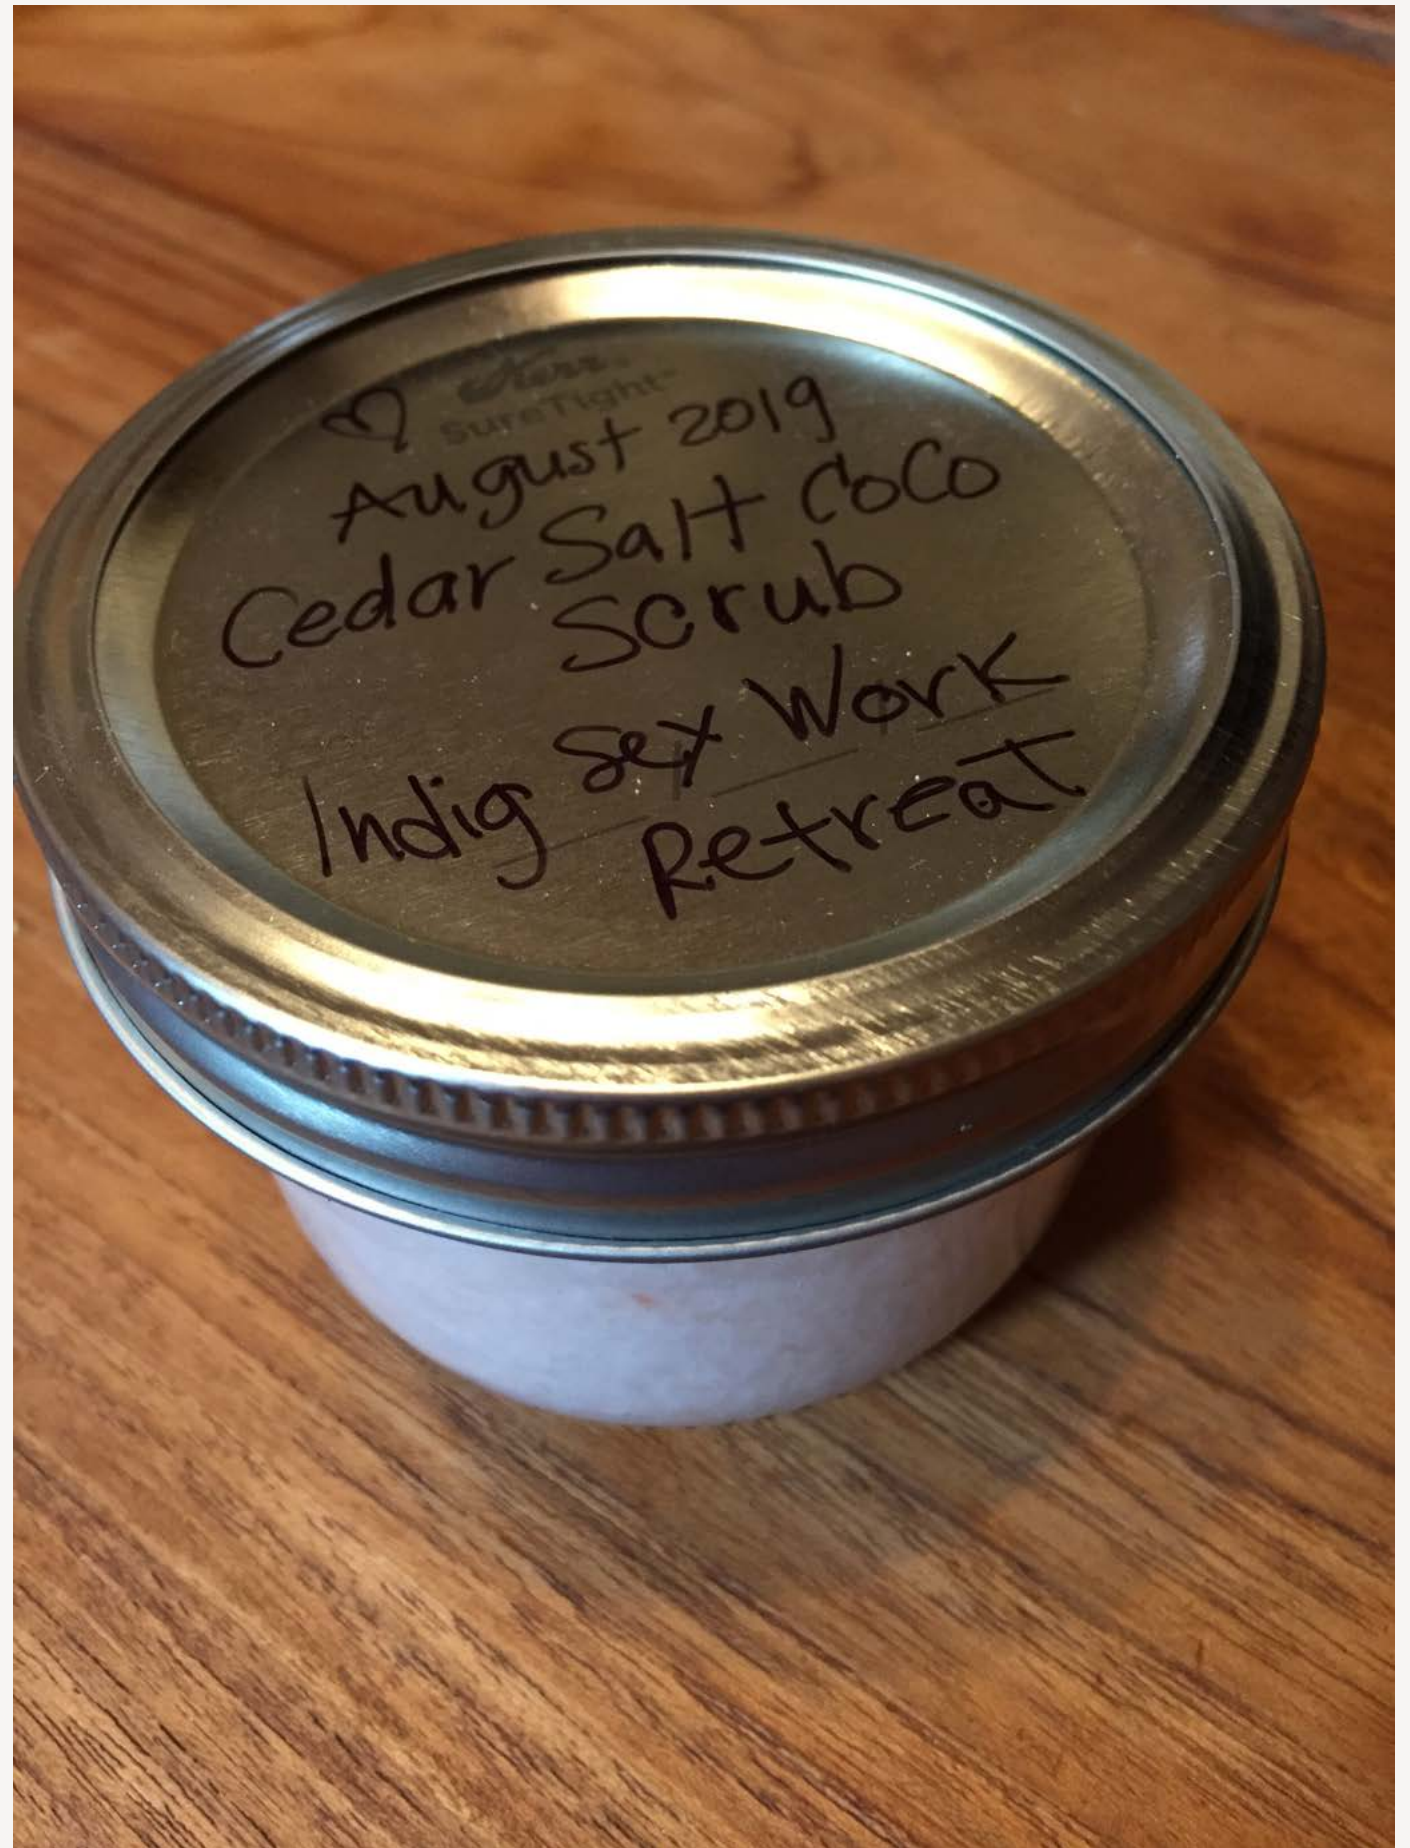 Kerr
SureTight™
August 2019
Cedar Salt CoCo
Scrub
Indig Sex Work
Retreat